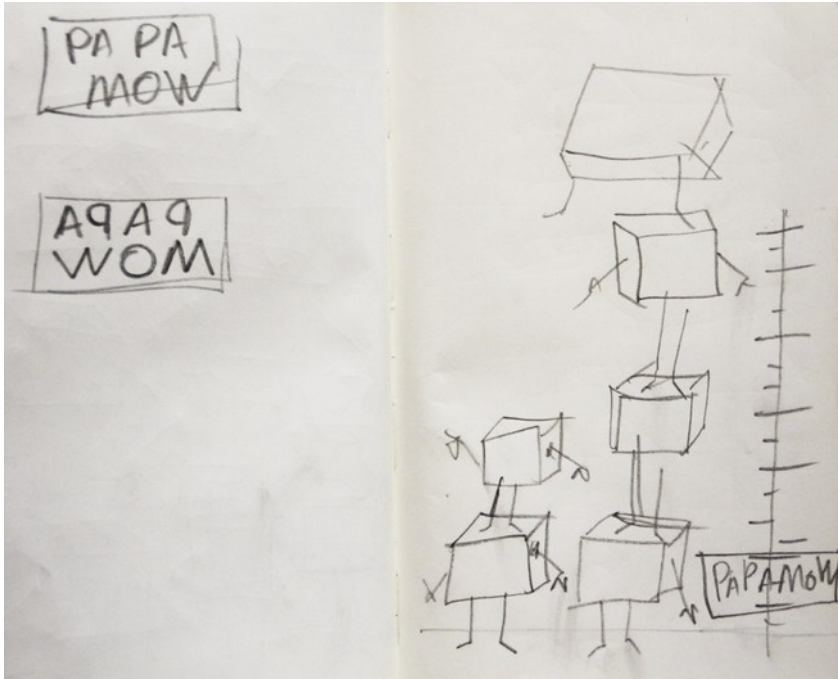 PA PA
MOW
AqAq
WOM
PAPAMOW